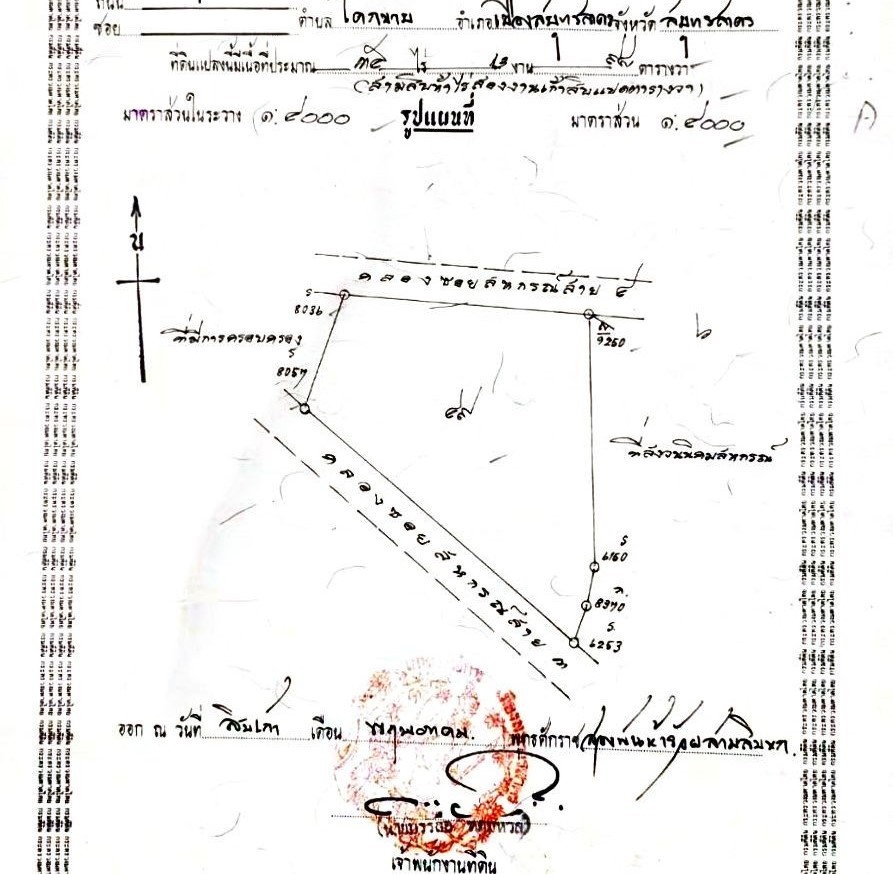 ถนน
ซอย ตำบล โคกขาม อำเภอเมืองสมุทรสาคร จังหวัด สมุทรสาคร
ที่ดินแปลงนี้มีเนื้อที่ประมาณ ๓๕ ไร่ ๒ งาน ๙๘ ตารางวา
(สามสิบห้าไร่สองงานเก้าสิบแปดตารางวา)
มาตราส่วนในระวาง ๑:๔๐๐๐ รูปแผนที่ มาตราส่วน ๑:๔๐๐๐
น
คลองซอยสหกรณ์สาย ๔
ร
8036
9260
ที่มีการครอบครอง
ร
8057
๔๙
ที่สงวนนิคมสหกรณ์
คลองซอยสหกรณ์สาย ๓
ร
6160
ก.
8970
ร.
6253
ออก ณ วันที่ สิบเก้า เดือน พฤษภาคม. พุทธศักราช สองพันห้าร้อยสามสิบหก.
เจ้าพนักงานที่ดิน